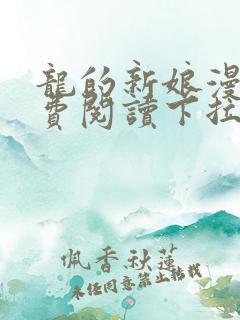 龍的新娘漫
費閱讀下拉
佩香秋蓮
未经同意禁止轉找